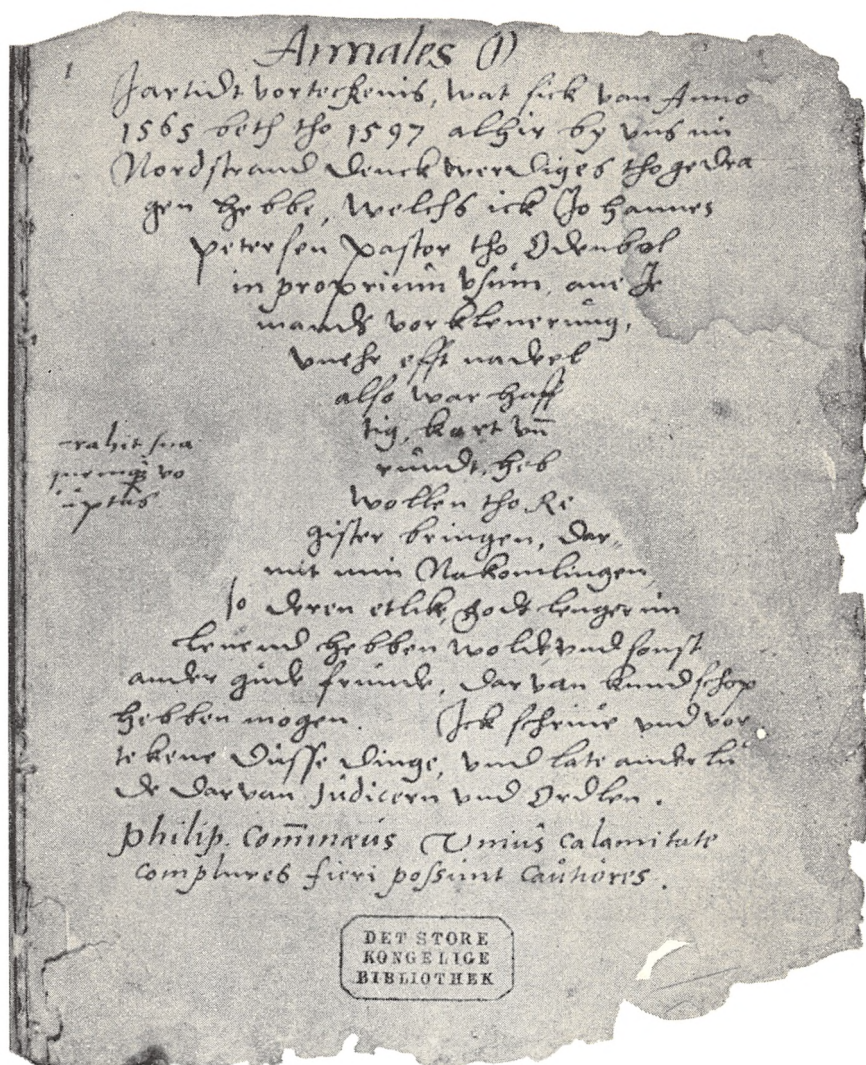 Annales
1
Jartidt vorteckenis, wat sick van Anno
1565 beth tho 1597 alhir by vns im
Nordstrand denckwerdiges thogedra
gen hebbe, welchs ick Johannes
petersen pastor tho Odenbol
in proprium vsum, ane Je
mands vorklenerung,
vnehr efft nadeel
also warhaff
tig, kort vn̄
rundt, heb
wollen tho Re
gister bringen, dar„
mit min Nakomlingen
so deren etlik, godt lenger im
leuend hebben wolde vnd sonst
ander gude frunde, dar van kundschop
hebben mogen. Ick schriue vnd vor
tekene dusse dinge, vnd late ander lu
de dar van Judicern vnd Ordlen.
philip. Com̄inæus Vnius calamitate
complures fieri possunt cautiores.
rahit sua
quemq vo
uptas
DET STORE
KONGELIGE
BIBLIOTHEK